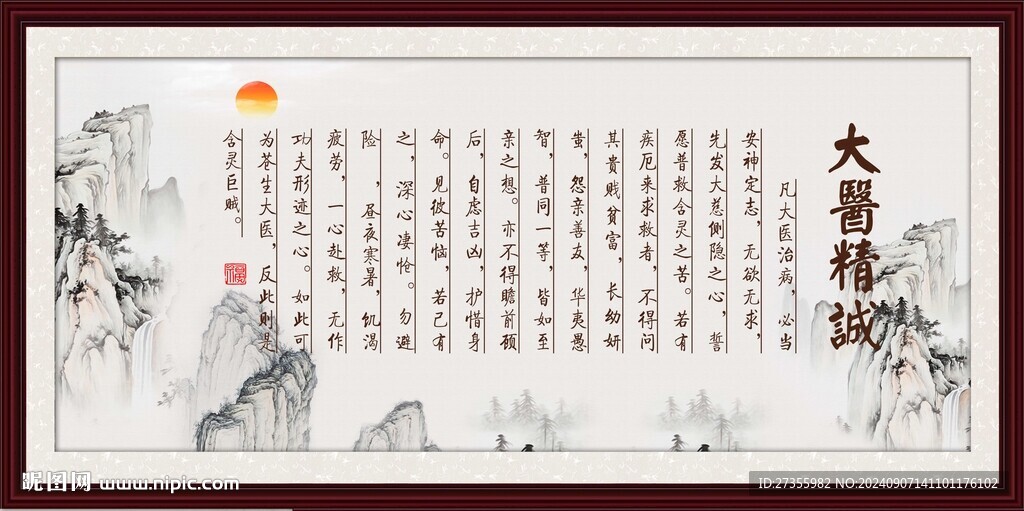 大醫精誠
凡大医治病，必当
安神定志，无欲无求，
先发大慈恻隐之心，誓
愿普救含灵之苦。若有
疾厄来求救者，不得问
其貴贱贫富，长幼妍
蚩，怨亲善友，华夷愚
智，普同一等，皆如至
亲之想。亦不得瞻前顾
后，自虑吉凶，护惜身
命。见彼苦恼，若己有
之，深心凄怆。勿避
险 ，昼夜寒暑，饥渴
疲劳，一心赴救，无作
功夫形迹之心。如此可
为苍生大医，反此则是
含灵巨贼。
昵图网 www.nipic.com
ID:27355982 NO:20240907141101176102